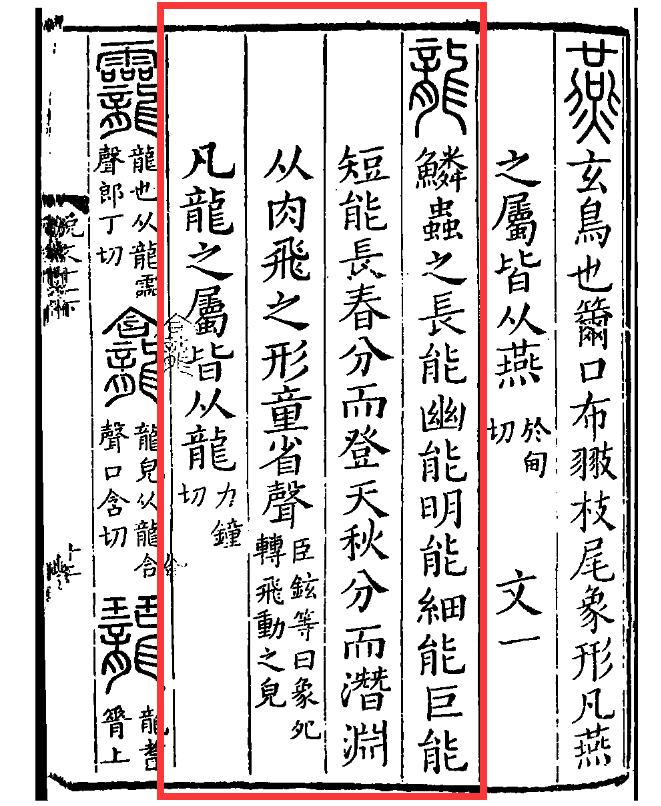 燕玄鳥也籋口布翄枝尾象形凡燕
之屬皆从燕於甸切 文一
龍鱗蟲之長能幽能明能細能巨能
短能長春分而登天秋分而潛淵
从肉飛之形童省聲臣鉉等曰象夗轉飛動之皃
凡龍之屬皆从龍力鐘切
龗龍也从龍霝聲郎丁切龕龍皃从龍合聲口含切 龍耆脊上